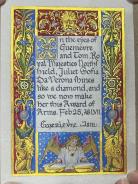 In the eyes of
Guenievre
and Tom, Ro
yal Majesties North
shield, Juliet Sofia
Da Verona shines
like a diamond, and
so we now make
her this Award of
Arms. Feb 25, AS LVII.